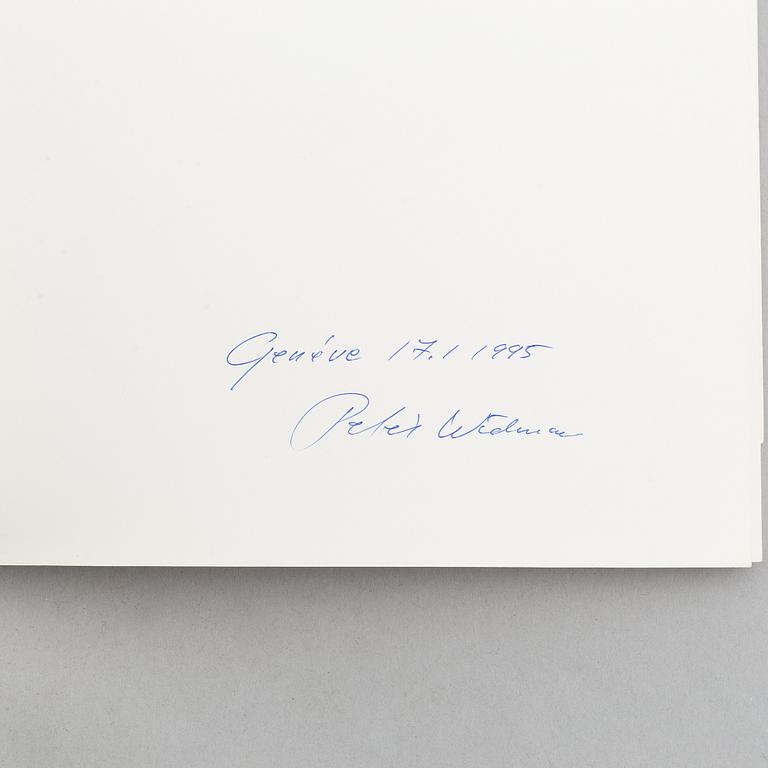 Genéve 17.1 1995
Peter Widman